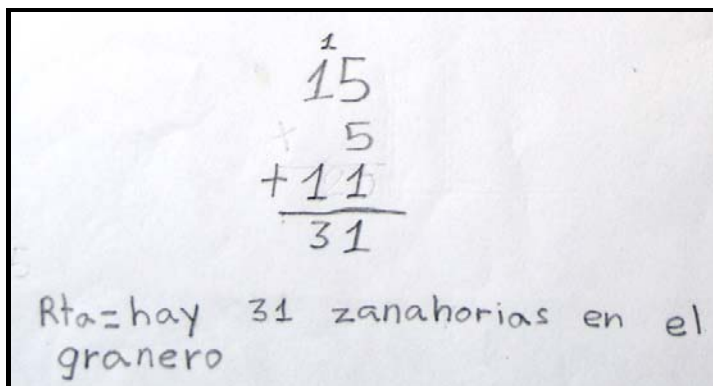 1
15
5
+ 11
31
Rta=hay 31 zanahorias en el
granero